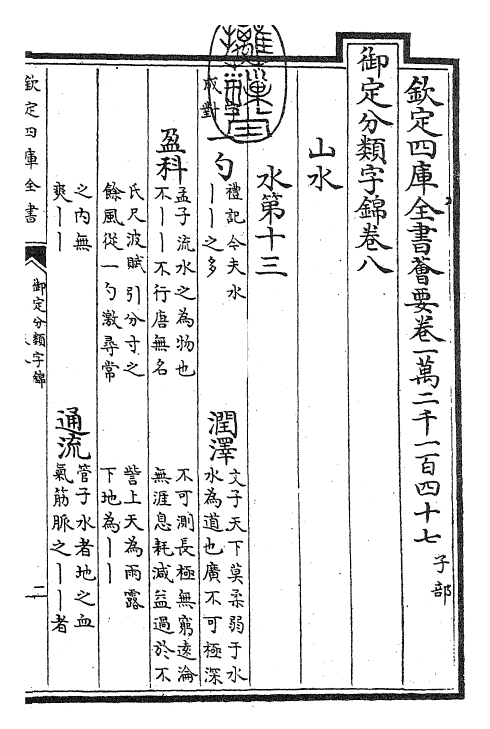 欽定四庫全書薈要卷一萬二千一百四十七 子部
御定分類字錦卷八
山水
水第十三
成對
一勺 禮記今夫水
丨丨之多
潤澤 文子天下莫柔弱于水
水為道也廣不可極深
盈科 孟子流水之為物也
不丨丨不行唐無名
不可測長極無窮遠淪
無涯息耗減益過於不
氏尺波賦引分寸之
餘風從一勺激尋常
訾上天為雨露
下地為丨丨
之內無
爽丨丨
通流 管子水者地之血
氣筋脈之丨丨者
欽定四庫全書
御定分類字錦
二